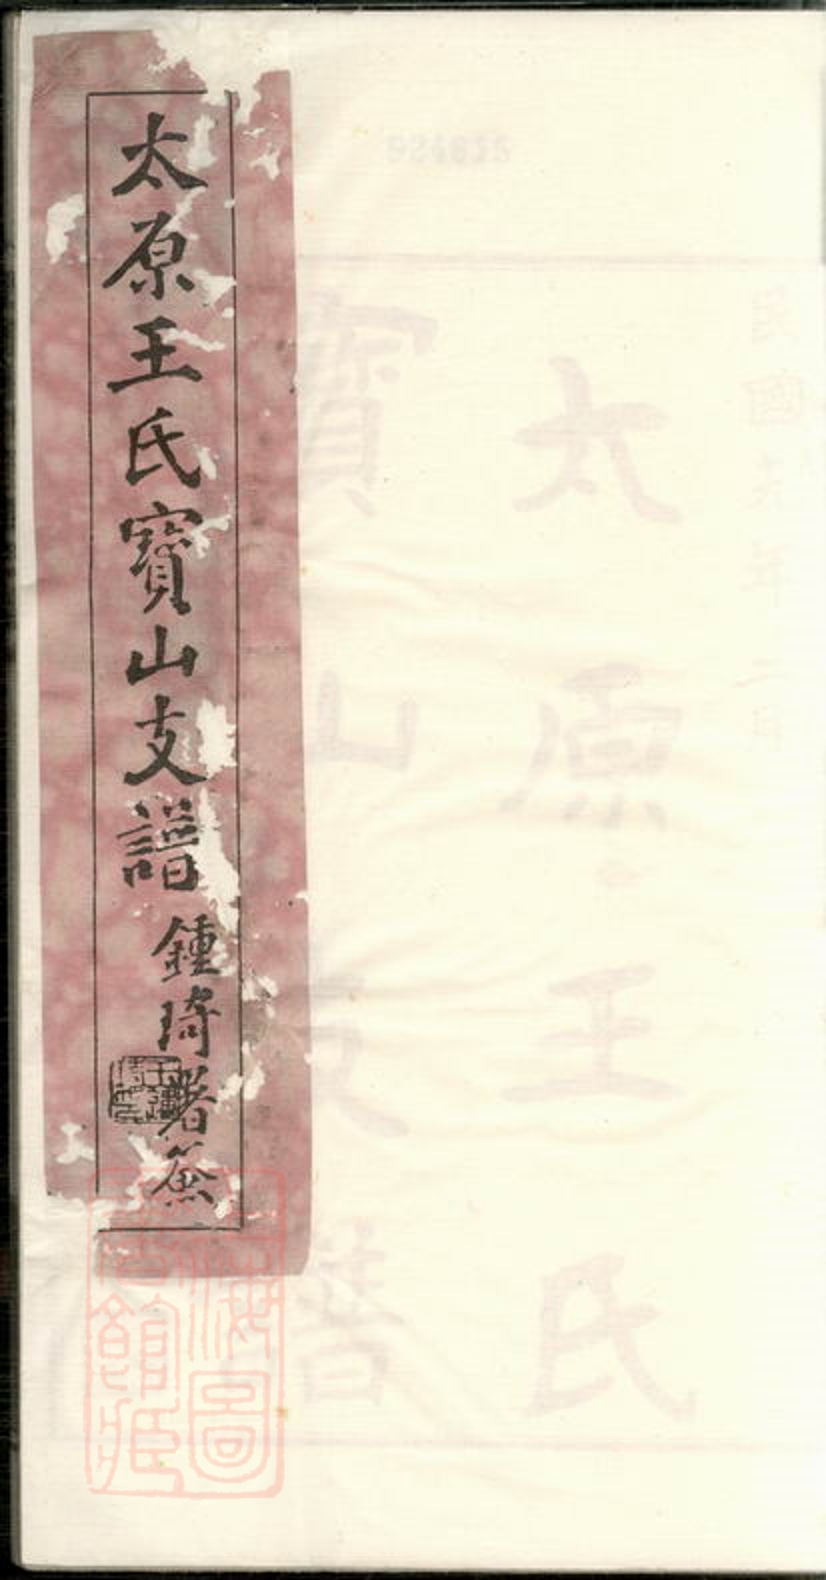 太原王氏寶山支譜
鍾琦署簽
924615
民國
年二月
太原王氏
寶山支譜
海圖
館藏